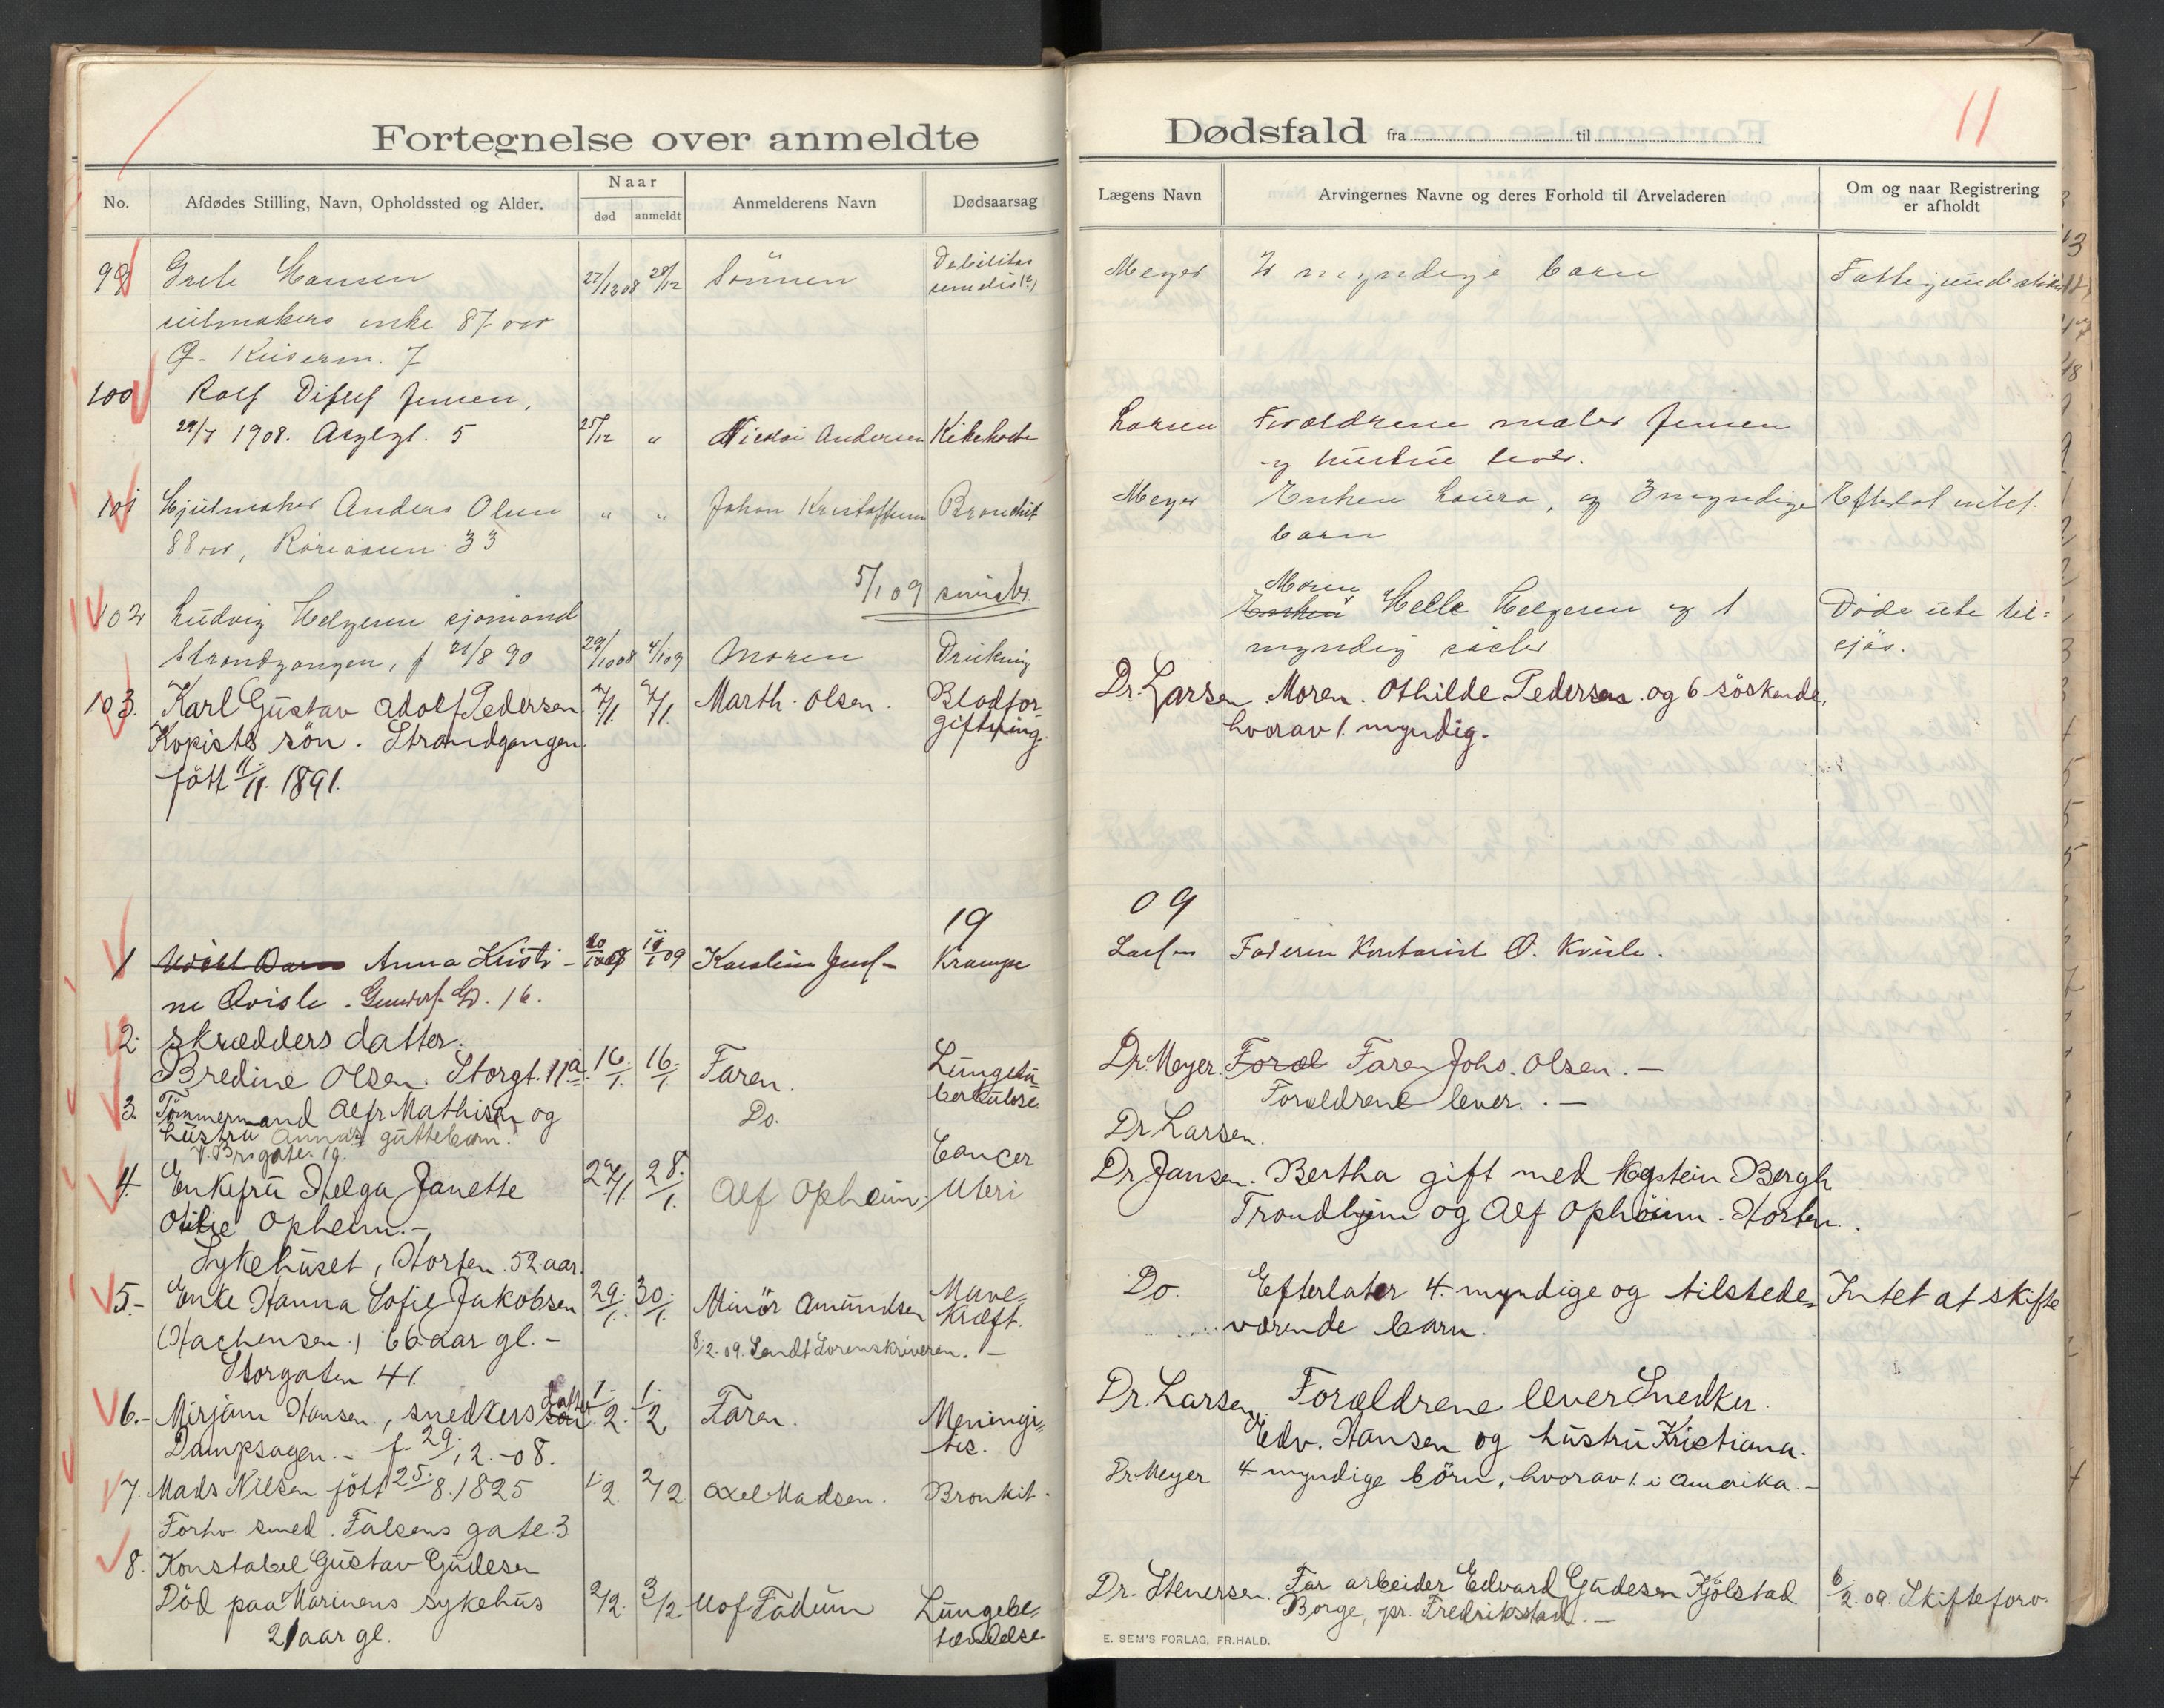 11
Fortegnelse over anmeldte
Dødsfald fra til
No.
Afdødes Stilling, Navn, Opholdssted og Alder.
Naar
død
anmeldt
Anmelderens Navn
Dødsaarsag
Lægens Navn
Arvingernes Navne og deres Forhold til Arveladeren
Om og naar Registrering
er afholdt
99 Grete Hansen 27/12 08 28/12 Sönnen Debilitas
senilis (?)
Meyer 2 myndige barn
enke 87 aar
7
100 Rolf Ditlef Jensen,
29/7 1908. Asylgt. 5 25/12 " Nicolai Andersen Kikehoste
Larsen Forældrene maler Jensen
og hustru lever.
101 Hjulmaker Anders Olsen " " Johan Kristoffersen Bronchit
88 aar, 33
Meyer Enken Laura, og 3 myndige
barn
5/1 09
102 Ludvig Helgesen sjömand
Strandgangen, f 21/8 90 29/10 08 4/1 09 Moren Drukning
Moren
Enken Helle Helgesen og 1
myndig söster
Döde ute til=
sjös.
103. Karl Gustav Adolf Pedersen Marth. Olsen. Blodfor-
Kopists sön. Strandgangen giftning.
födt 11/11. 1891.
Dr. Larsen Moren. Othilde Pedersen og 6 söskende,
hvorav 1. myndig.
19 09
1 Anna Kristi-
ne Qvisle. 16. 09 Krampe
Faderen Kontorist O. Kvisle.
2. skrædders datter.
Bredine Olsen. Storgt. 11a. 16./1. 16./1. Faren. Lungetu-
berkulose.
Dr. Meyer. Foræl Faren Johs. Olsen. —
3. Tömmermand Alfr Mathisen og Do.
hustru Anna's guttebarn.
Dr Larsen. Forældrene lever. . —
4. Enkefru Helga Janette 28./1. Alf Opheim. Cancer
Uteri
Otilie Opheim. —
Sykehuset, Horten. 52 aar.
Dr. Jansen. Bertha gift med Bergh
Trondhjem og Alf Opheim. Horten.
5.- Enke Hanna Sofie Jakobsen 29./1. 30./1. Minör Amundsen Mave=
kræft.
(Hachensen.) 66 aar gl. - 8/2. 09. Sendt Sorenskriveren. —
Storgaten 41.
Do. Efterlater 4. myndige og tilstede=
værende barn.
Intet at skifte
6.- Mirjam Hansen, snedkers sön datter 1./2. 1./2 Faren. Meningi=
tis.
Dampsagen. - f. 29./12. -08.
Dr. Larsen Forældrene lever Snedker
Edv. Hansen og hustru Kristiana.
7. Mads Nilsen födt 25./8. 1825 1./2. 2/2 Axel Madsen. Bronkit.
Forhv. smed. Falsens gate 3
Dr. Meyer 4 myndige börn, hvorav 1. i Amerika. -
8. Konstabel Gustav Gudesen
Död paa Marinens sykehus 2/2. 3/2. Fadum Lungebe=
tændelse.
21 aar gl.
Dr. Stenersen. Far arbeider Edvard Gudesen Kjölstad
Borge, pr. Fredrikstad. —
6/2. 09. Skifteforv.
E. SEM'S FORLAG, FR.HALD.